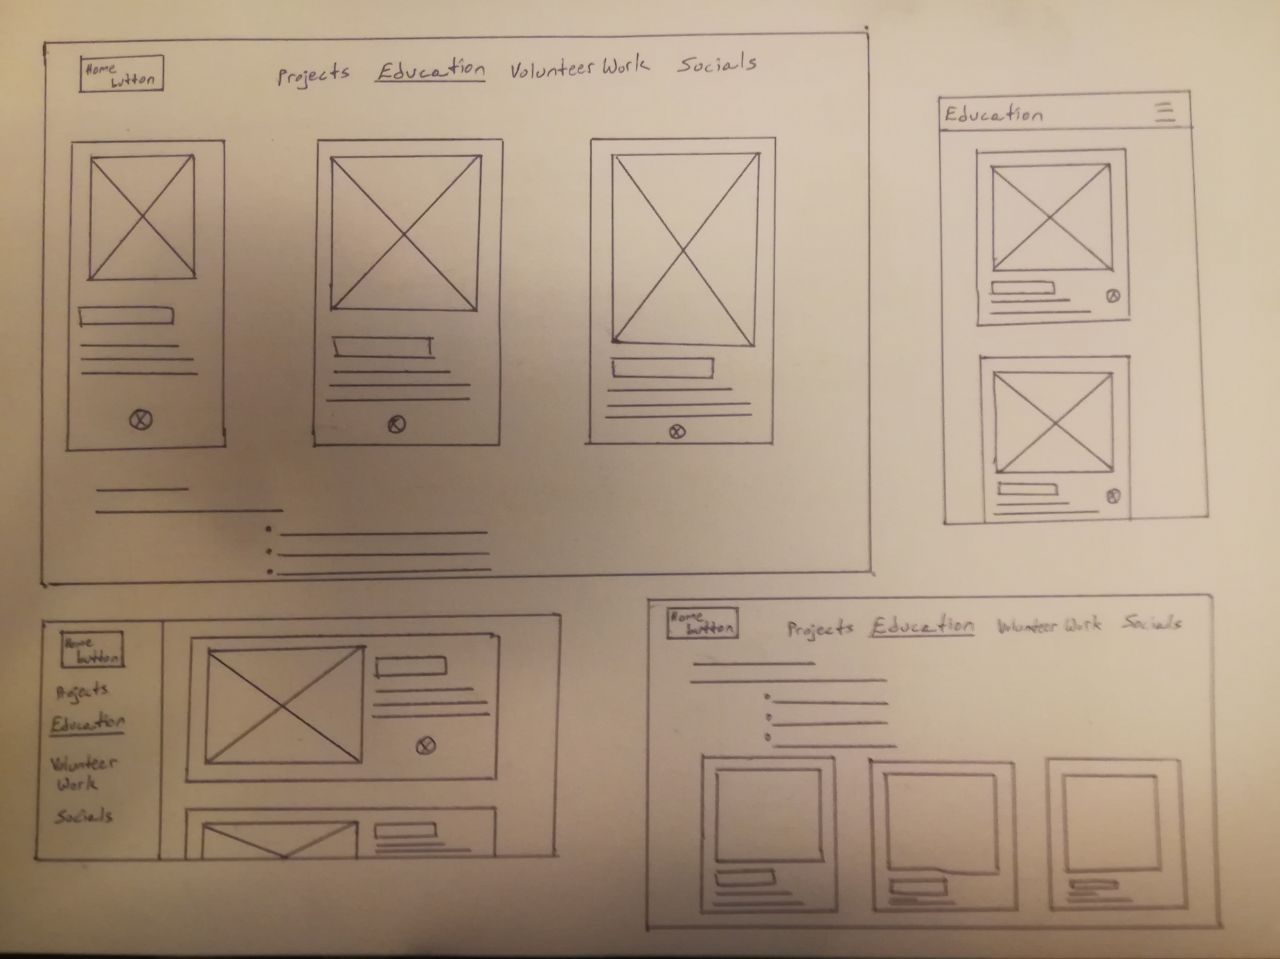 Home
button
Projects Education Volunteer Work Socials
Education
Home
button
Projects
Education
Volunteer
Work
Socials
Home
button
Projects Education Volunteer Work Socials